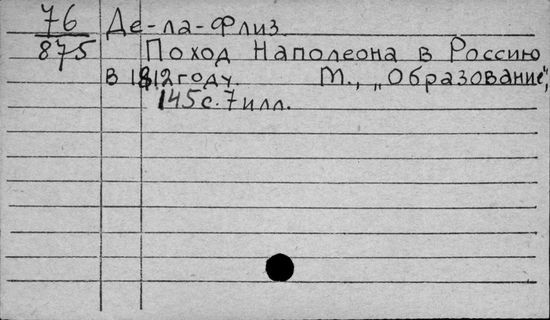 76 Де-ла-Флиз
875 Поход Наполеона в Россию
в 1812 году. М., „Образование",
145 с. 7 илл.